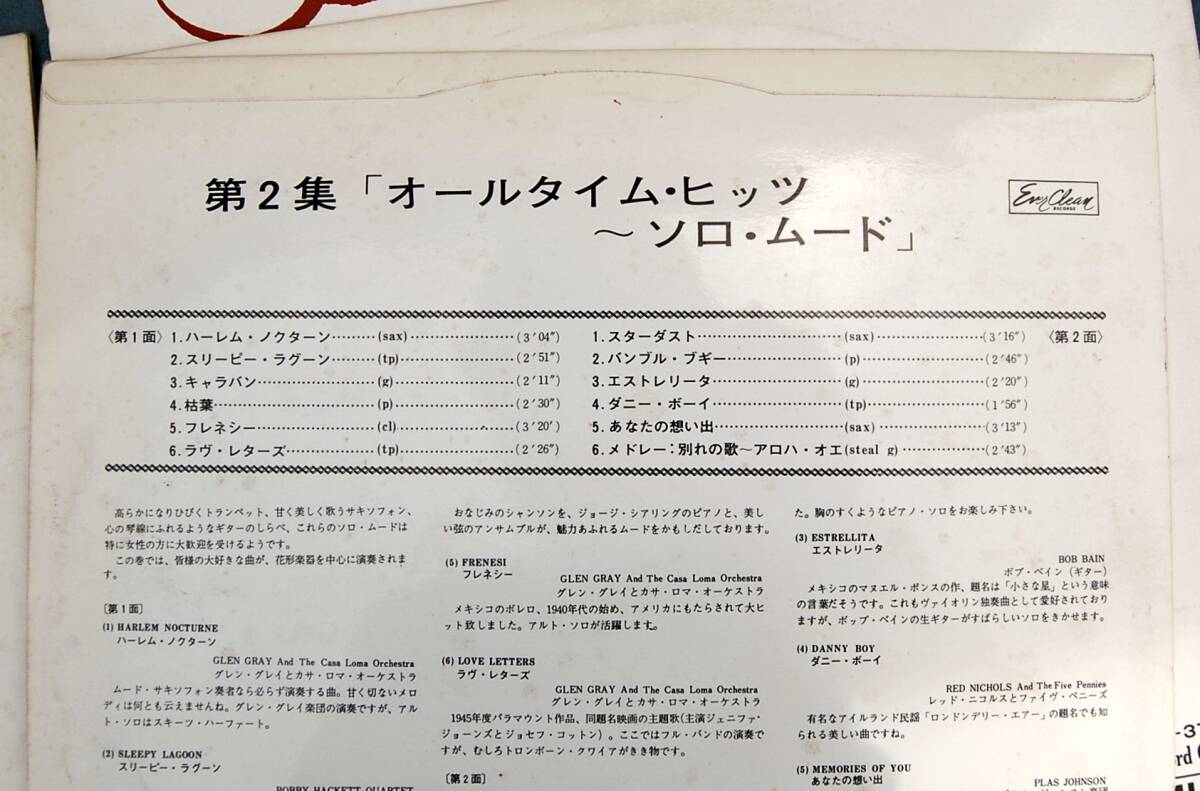 第2集「オールタイム・ヒッツ
～ソロ・ムード」
Ever Clean
RECORDS
〈第1面〉
1.ハーレム・ノクターン………(sax)…………………(3′04″)
2.スリーピー・ラグーン………(tp)…………………(2′51″)
3.キャラバン…………………(g)…………………(2′11″)
4.枯葉…………………(p)…………………(2′30″)
5.フレネシー…………………(cl)…………………(3′20′)
6.ラヴ・レターズ…………………(tp)…………………(2′26″)
〈第2面〉
1.スターダスト…………………(sax)…………………(3′16″)
2.バンブル・ブギー…………………(p)…………………(2′46″)
3.エストレリータ…………………(g)…………………(2′20″)
4.ダニー・ボーイ…………………(tp)…………………(1′56″)
5.あなたの想い出…………………(sax)…………………(3′13″)
6.メドレー：別れの歌～アロハ・オエ(steal g)……………(2′43″)
高らかになりひびくトランペット、甘く美しく歌うサキソフォン、
心の琴線にふれるようなギターのしらべ、これらのソロ・ムードは
特に女性の方に大歓迎を受けるようです。
この巻では、皆様の大好きな曲が、花形楽器を中心に演奏されま
す。
〔第1面〕
(1) HARLEM NOCTURNE
ハーレム・ノクターン
GLEN GRAY And The Casa Loma Orchestra
グレン・グレイとカサ・ロマ・オーケストラ
ムード・サキソフォン奏者なら必らず演奏する曲。甘く切ないメロ
ディは何とも云えませんね。グレン・グレイ楽団の演奏ですが、アル
ト・ソロはスキーツ・ハーファート。
(2) SLEEPY LAGOON
スリーピー・ラグーン
BOBBY HACKETT QUARTET
おなじみのシャンソンを、ジョージ・シアリングのピアノと、美し
い弦のアンサムブルが、魅力あふれるムードをかもしだしております。
(5) FRENESI
フレネシー
GLEN GRAY And The Casa Loma Orchestra
グレン・グレイとカサ・ロマ・オーケストラ
メキシコのボレロ、1940年代の始め、アメリカにもたらされて大ヒ
ット致しました。アルト・ソロが活躍します。
(6) LOVE LETTERS
ラヴ・レターズ
GLEN GRAY And The Casa Loma Orchestra
グレン・グレイとカサ・ロマ・オーケストラ
1945年度パラマウント作品、同題名映画の主題歌(主演ジェニファ・
ジョーンズとジョセフ・コットン)。ここではフル・バンドの演奏で
すが、むしろトロンボーン・クワイアがきき物です。
〔第2面〕
た。胸のすくようなピアノ・ソロをお楽しみ下さい。
(3) ESTRELLITA
エストレリータ
BOB BAIN
ボブ・ベイン（ギター）
メキシコのマヌエル・ポンスの作、題名は「小さな星」という意味
の言葉だそうです。これもヴァイオリン独奏曲として愛好されており
ますが、ボッブ・ベインの生ギターがすばらしいソロをきかせます。
(4) DANNY BOY
ダニー・ボーイ
RED NICHOLS And The Five Pennies
レッド・ニコルスとファイヴ・ペニーズ
有名なアイルランド民謡「ロンドンデリー・エアー」の題名でも知
られる美しい曲ですね。
(5) MEMORIES OF YOU
あなたの想い出
PLAS JOHNSON